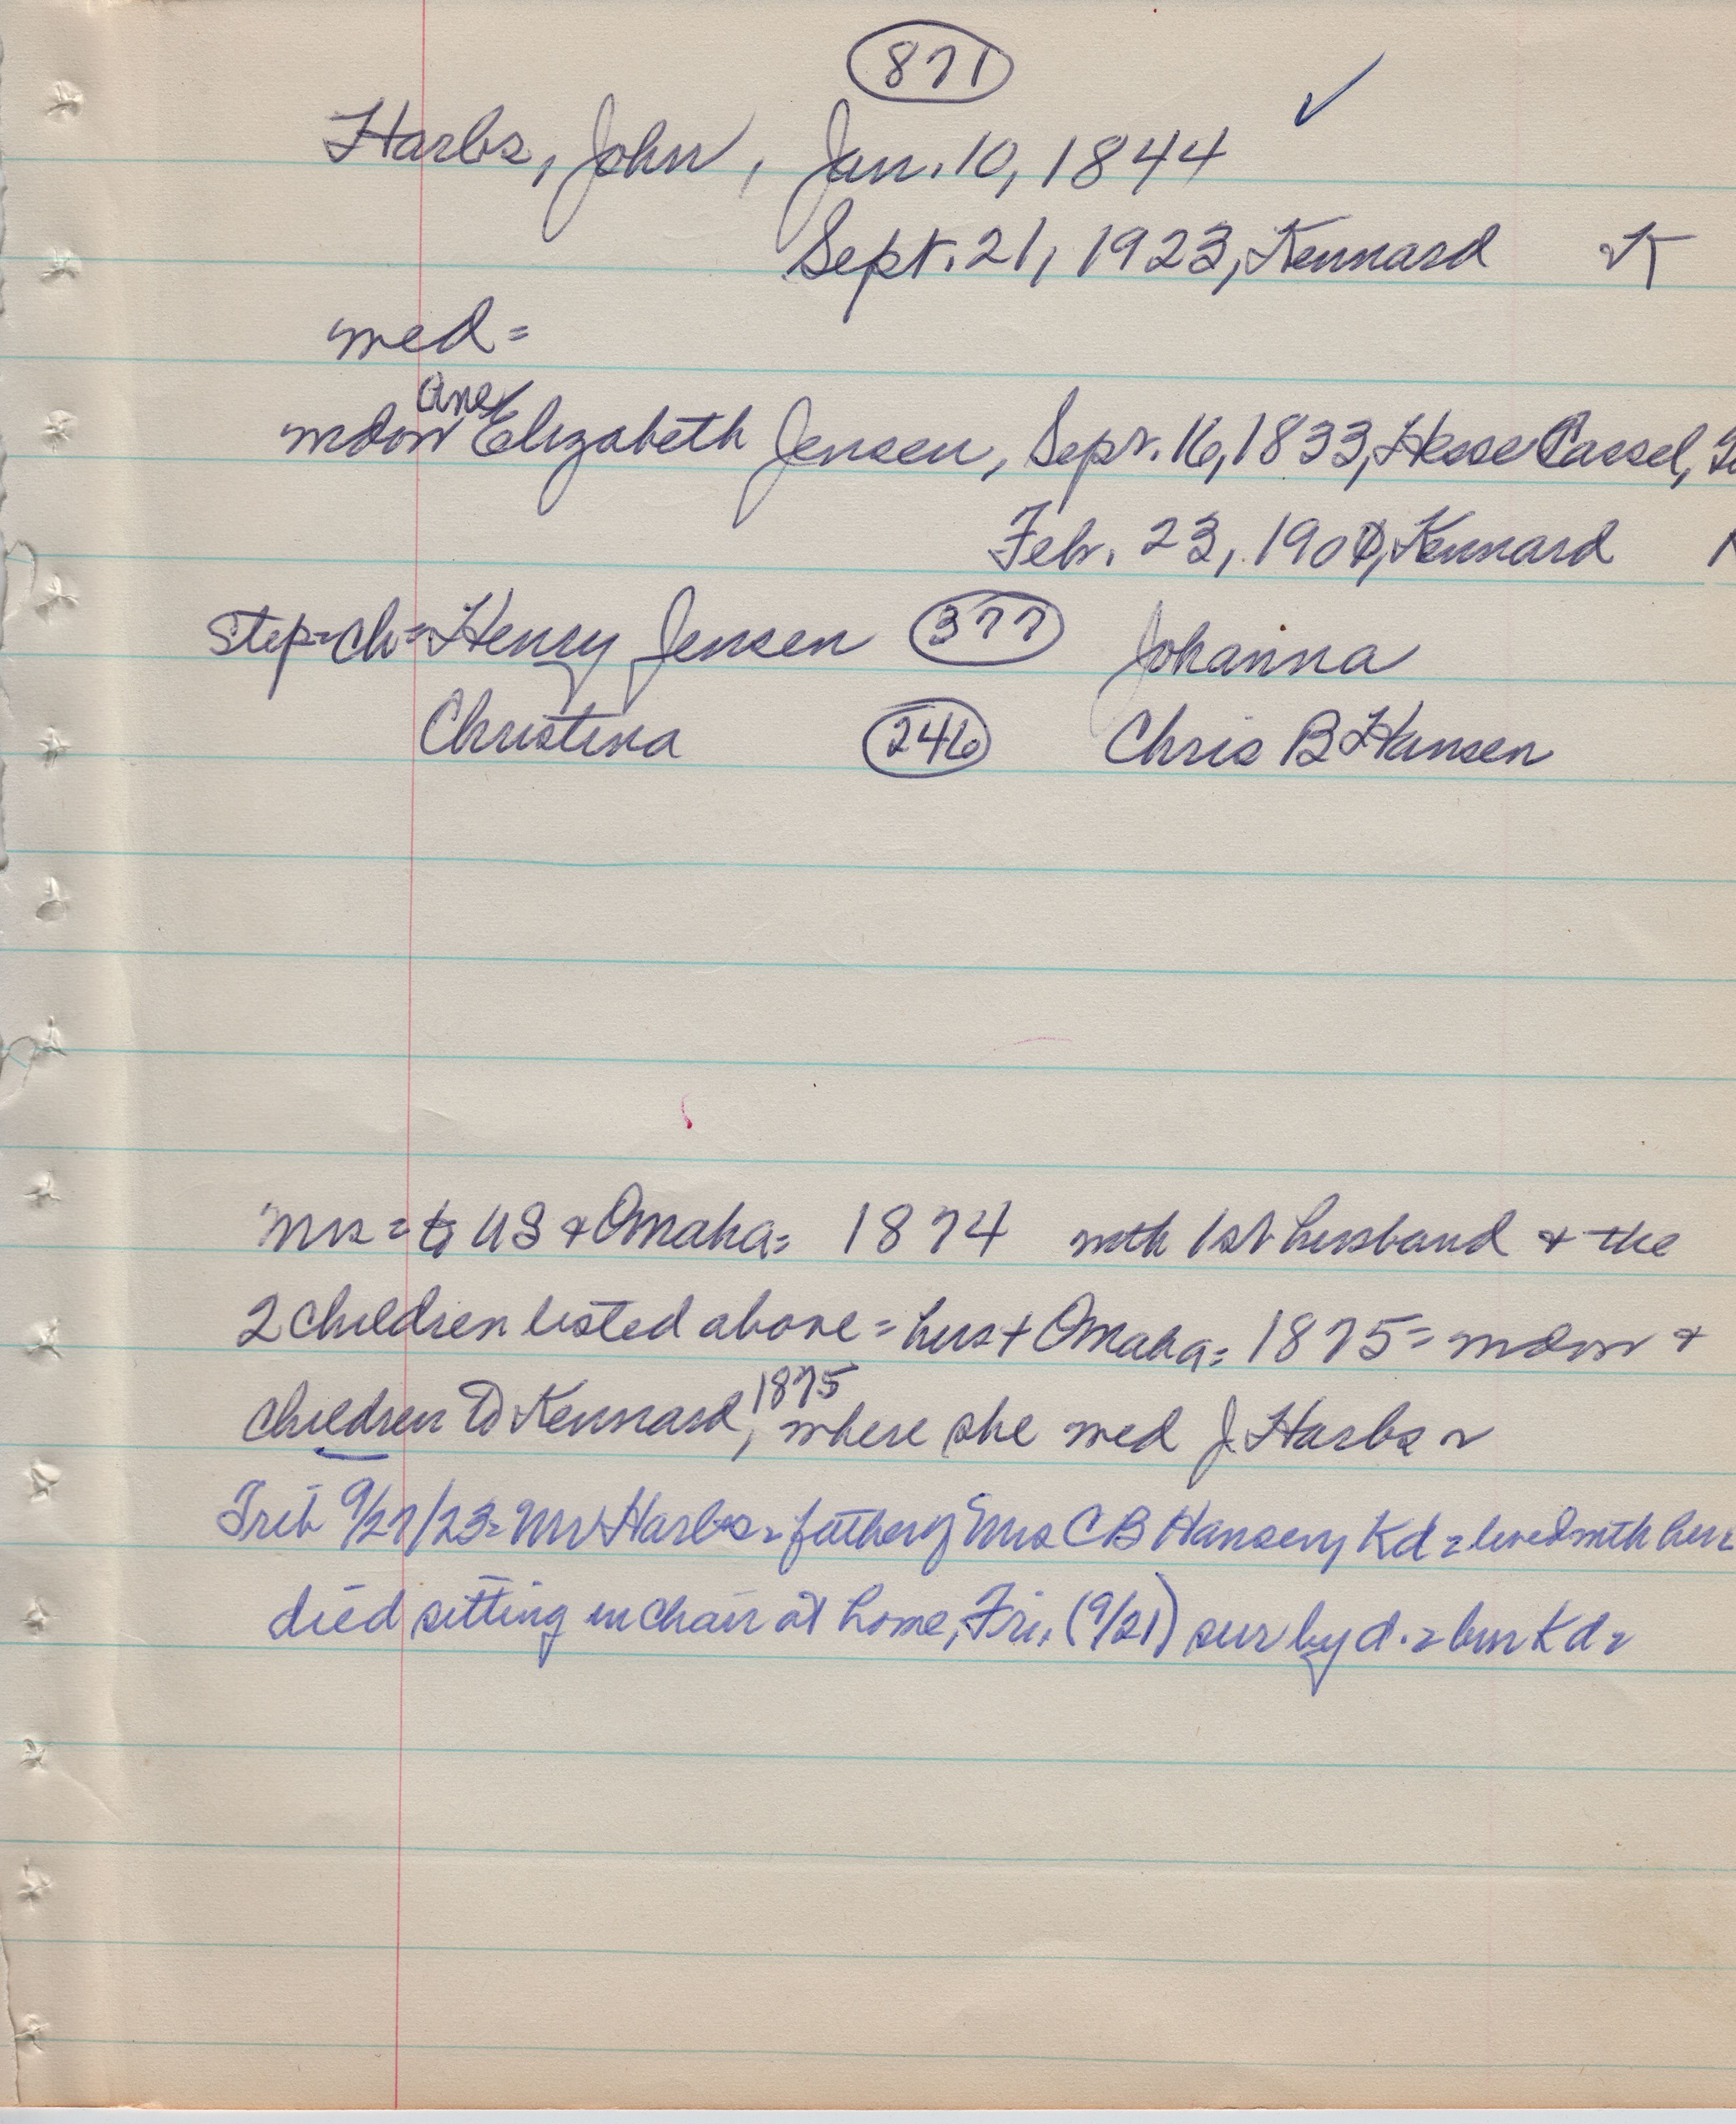 871
Harbs, John, Jan. 10, 1844 ✓
Sept. 21, 1923, Kennard K
med =
Ane
widow Elizabeth Jensen, Sept. 16, 1833, Hesse Cassel,
Feb. 23, 1900, Kennard
Step-ch = Henry Jensen 377 Johanna
Christina 246 Chris B Hansen
Mrs = to US + Omaha = 1874 with 1st husband + the
2 children listed above = hus + Omaha = 1875 = widow +
1875
children to Kennard, where she med J. Harbs =
Trib 9/27/23 = Mr Harbs = father of Mrs C B Hansen, Kd = lived with her =
died sitting in chair at home, Fri. (9/21) sur by d. = bur Kd =